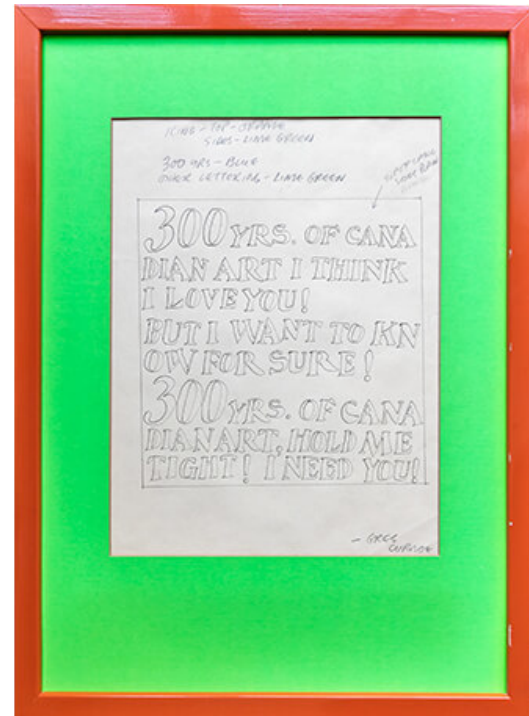 ICING - TOP - ORANGE
SIDES - LIME GREEN
300 YRS - BLUE
OTHER LETTERING - LIME GREEN
300 YRS. OF CANA
DIAN ART I THINK
I LOVE YOU!
BUT I WANT TO KN
OW FOR SURE!
300 YRS. OF CANA
DIAN ART, HOLD ME
TIGHT! I NEED YOU!
- GREG
CURNOE